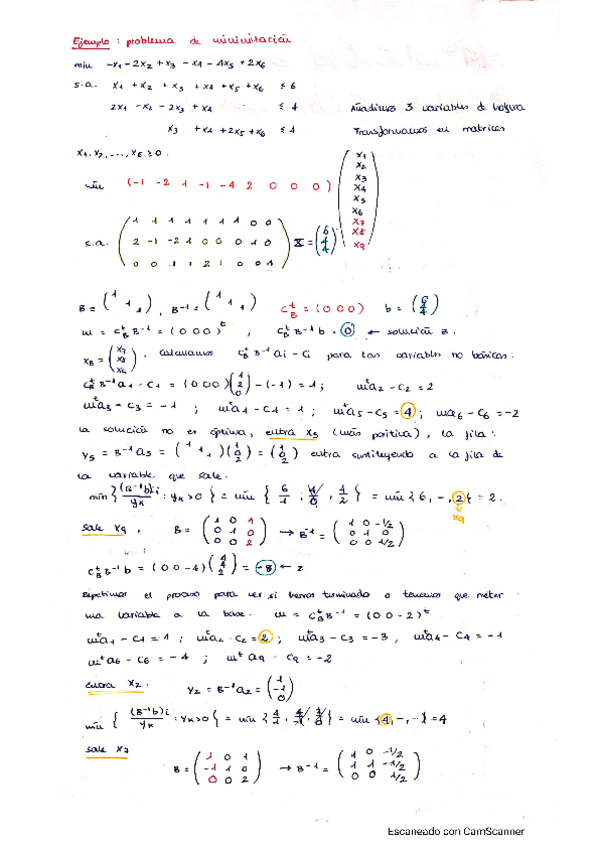 Ejemplo: problema de minimización
min -x1 - 2x2 + x3 - x4 - 4x5 + 2x6
s.a. x1 + x2 + x3 + x4 + x5 + x6 ≤ 6
2x1 - x2 - 2x3 + x4 ≤ 4 Añadimos 3 variables de holgura
x3 + x4 + 2x5 + x6 ≤ 4 Transformamos en matrices
x1, x2, ..., x6 ≥ 0.
min (-1 -2 1 -1 -4 2 0 0 0) (x1 x2 x3 x4 x5 x6 x7 x8 x9)
s.a. (1 1 1 1 1 1 1 0 0
2 -1 -2 1 0 0 0 1 0
0 0 1 1 2 1 0 0 1) X = (6 4 4)
B = (1 1 1), B⁻¹ = (1 1 1) C_B^t = (0 0 0) b = (6 4 4)
w = C_B^t B⁻¹ = (0 0 0)^t, C_B^t B⁻¹ b = 0 ← solución z.
x_B = (x7 x8 x9). Calculamos C_B^t B⁻¹ ai - ci para las variables no básicas:
C_B^t B⁻¹ a1 - c1 = (0 0 0)(1 2 0) - (-1) = 1; w^t a2 - c2 = 2
w^t a3 - c3 = -1; w^t a4 - c4 = 1; w^t a5 - c5 = 4; w a6 - c6 = -2
la solución no es óptima, entra x5 (más positiva), la fila:
y5 = B⁻¹ a5 = (1 1 1)(1 0 2) = (1 0 2) entra sustituyendo a la fila de
la variable que sale.
min { (B⁻¹b)i / yk : yk > 0 } = min { 6/1, 4/0, 4/2 } = min {6, -, 2} = 2.
x9
sale x9, B = (1 0 1
0 1 0
0 0 2) → B⁻¹ = (1 0 -1/2
0 1 0
0 0 1/2)
C_B^t B⁻¹ b = (0 0 -4)(4 4 2) = -8 ← z
repetimos el proceso para ver si hemos terminado o tenemos que meter
una variable a la base. w = C_B^t B⁻¹ = (0 0 -2)^t
w^t a1 - c1 = 1; w^t a2 - c2 = 2; w^t a3 - c3 = -3, w^t a4 - c4 = -1
w^t a6 - c6 = -4; w^t a9 - c9 = -2
entra x2. y2 = B⁻¹ a2 = (1 -1 0)
min { (B⁻¹b)i / yk : yk > 0 } = min { 4/1, 4/-1, 2/0 } = min {4, -, -} = 4
sale x7
B = (1 0 1
-1 1 0
0 0 2) → B⁻¹ = (1 0 -1/2
1 1 -1/2
0 0 1/2)
Escaneado con CamScanner